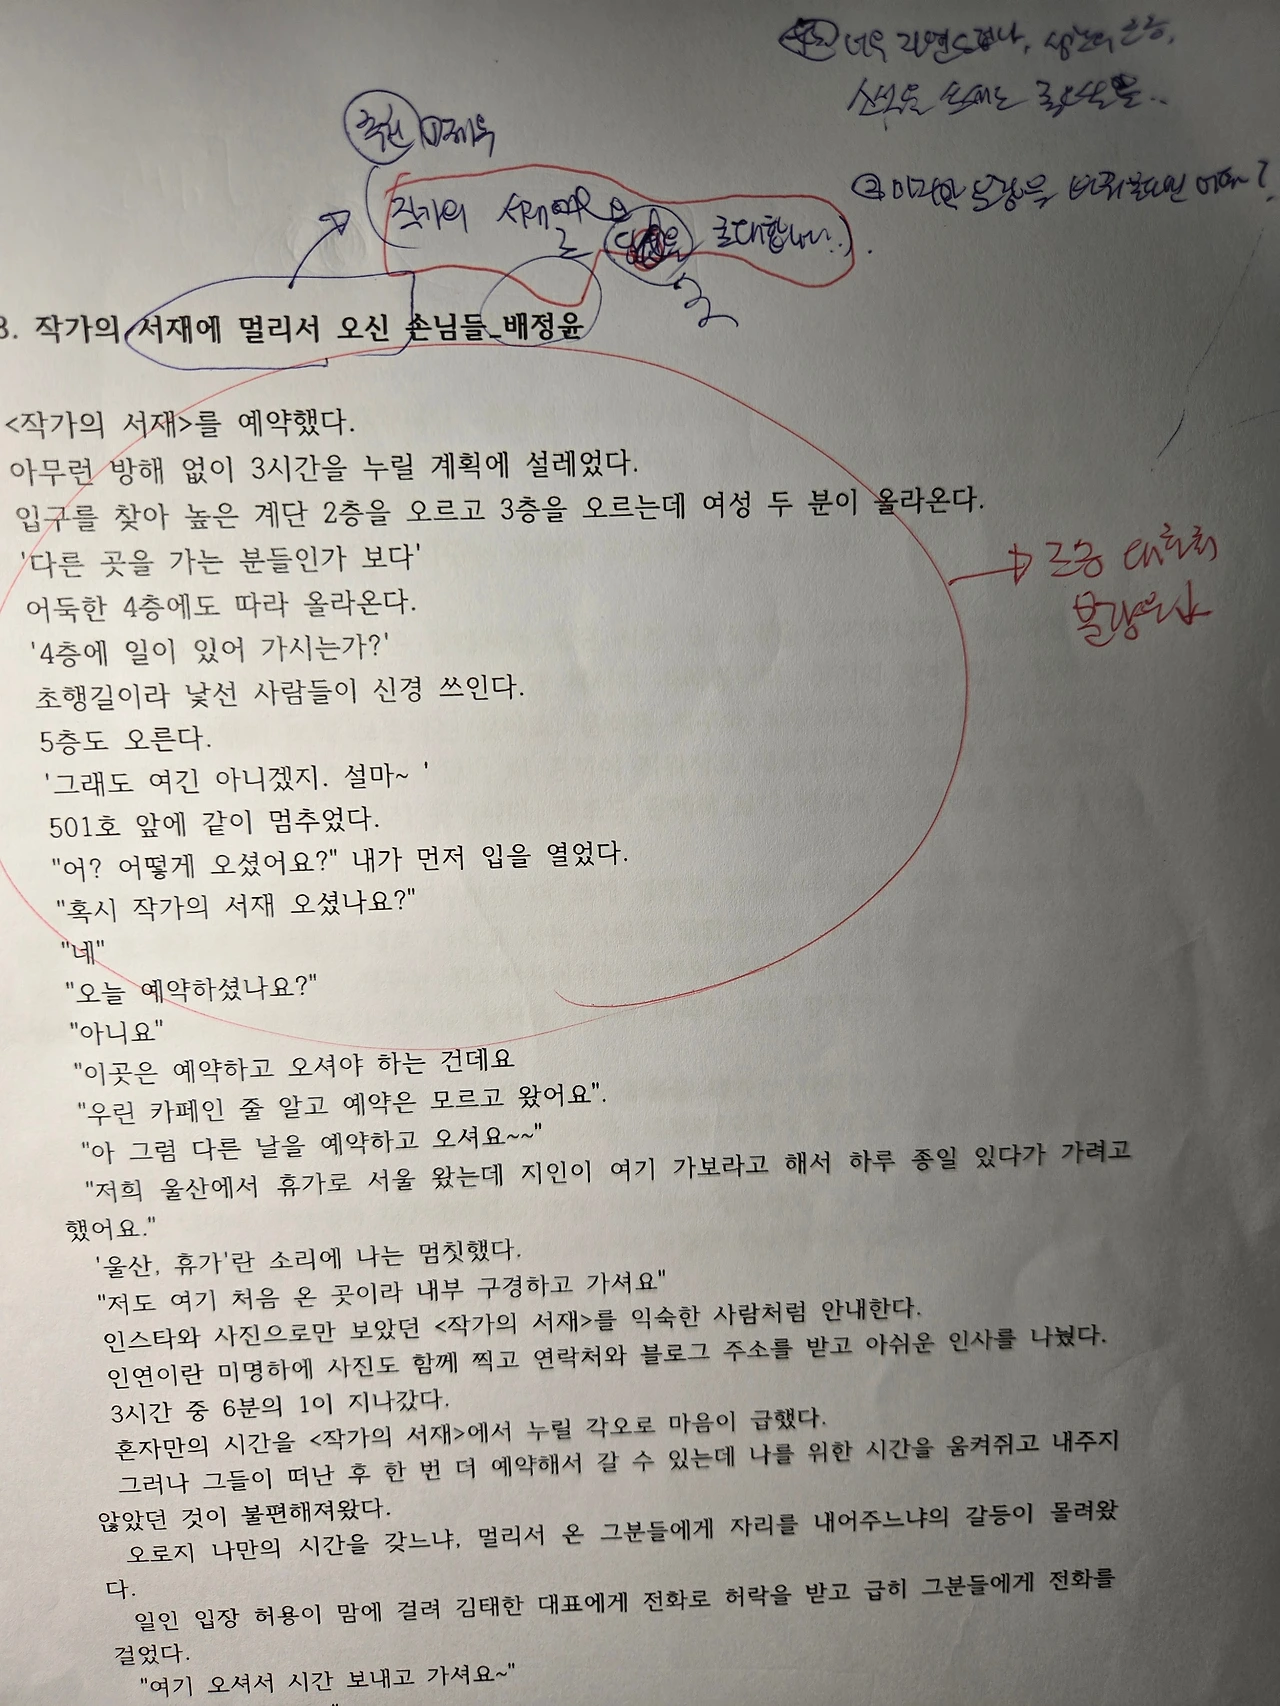 추천
작가의 서재
초대합니다.
3. 작가의 서재에 멀리서 오신 손님들_배정윤
<작가의 서재>를 예약했다.
아무런 방해 없이 3시간을 누릴 계획에 설레었다.
입구를 찾아 높은 계단 2층을 오르고 3층을 오르는데 여성 두 분이 올라온다.
'다른 곳을 가는 분들인가 보다'
어둑한 4층에도 따라 올라온다.
'4층에 일이 있어 가시는가?'
초행길이라 낯선 사람들이 신경 쓰인다.
5층도 오른다.
'그래도 여긴 아니겠지. 설마~ '
501호 앞에 같이 멈추었다.
"어? 어떻게 오셨어요?" 내가 먼저 입을 열었다.
"혹시 작가의 서재 오셨나요?"
"네"
"오늘 예약하셨나요?"
"아니요"
"이곳은 예약하고 오셔야 하는 건데요
"우린 카페인 줄 알고 예약은 모르고 왔어요".
"아 그럼 다른 날을 예약하고 오셔요~~"
"저희 울산에서 휴가로 서울 왔는데 지인이 여기 가보라고 해서 하루 종일 있다가 가려고
했어요."
'울산, 휴가'란 소리에 나는 멈칫했다.
"저도 여기 처음 온 곳이라 내부 구경하고 가셔요"
인스타와 사진으로만 보았던 <작가의 서재>를 익숙한 사람처럼 안내한다.
인연이란 미명하에 사진도 함께 찍고 연락처와 블로그 주소를 받고 아쉬운 인사를 나눴다.
3시간 중 6분의 1이 지나갔다.
혼자만의 시간을 <작가의 서재>에서 누릴 각오로 마음이 급했다.
그러나 그들이 떠난 후 한 번 더 예약해서 갈 수 있는데 나를 위한 시간을 움켜쥐고 내주지
않았던 것이 불편해져왔다.
오로지 나만의 시간을 갖느냐, 멀리서 온 그분들에게 자리를 내어주느냐의 갈등이 몰려왔
다.
일인 입장 허용이 맘에 걸려 김태한 대표에게 전화로 허락을 받고 급히 그분들에게 전화를
걸었다.
"여기 오셔서 시간 보내고 가셔요~"